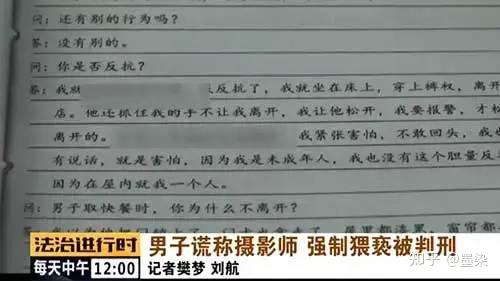 问：还有别的行为吗？
答：没有别的。
问：你是否反抗？
答：我就 反抗了，我就坐在床上，穿上裤衩，离开
店。他还抓住我的手不让我离开，我让他松开，我要报警，才松
离开的。 我紧张害怕，不敢回头，我也
有说话，就是害怕，因为我是未成年人，我也没有这个胆量反
因为在屋内就我一个人。
问：男子取快餐时，你为什么不离开？
法治进行时
每天中午 12:00
男子谎称摄影师 强制猥亵被判刑
记者樊梦 刘航
知乎 @墨染